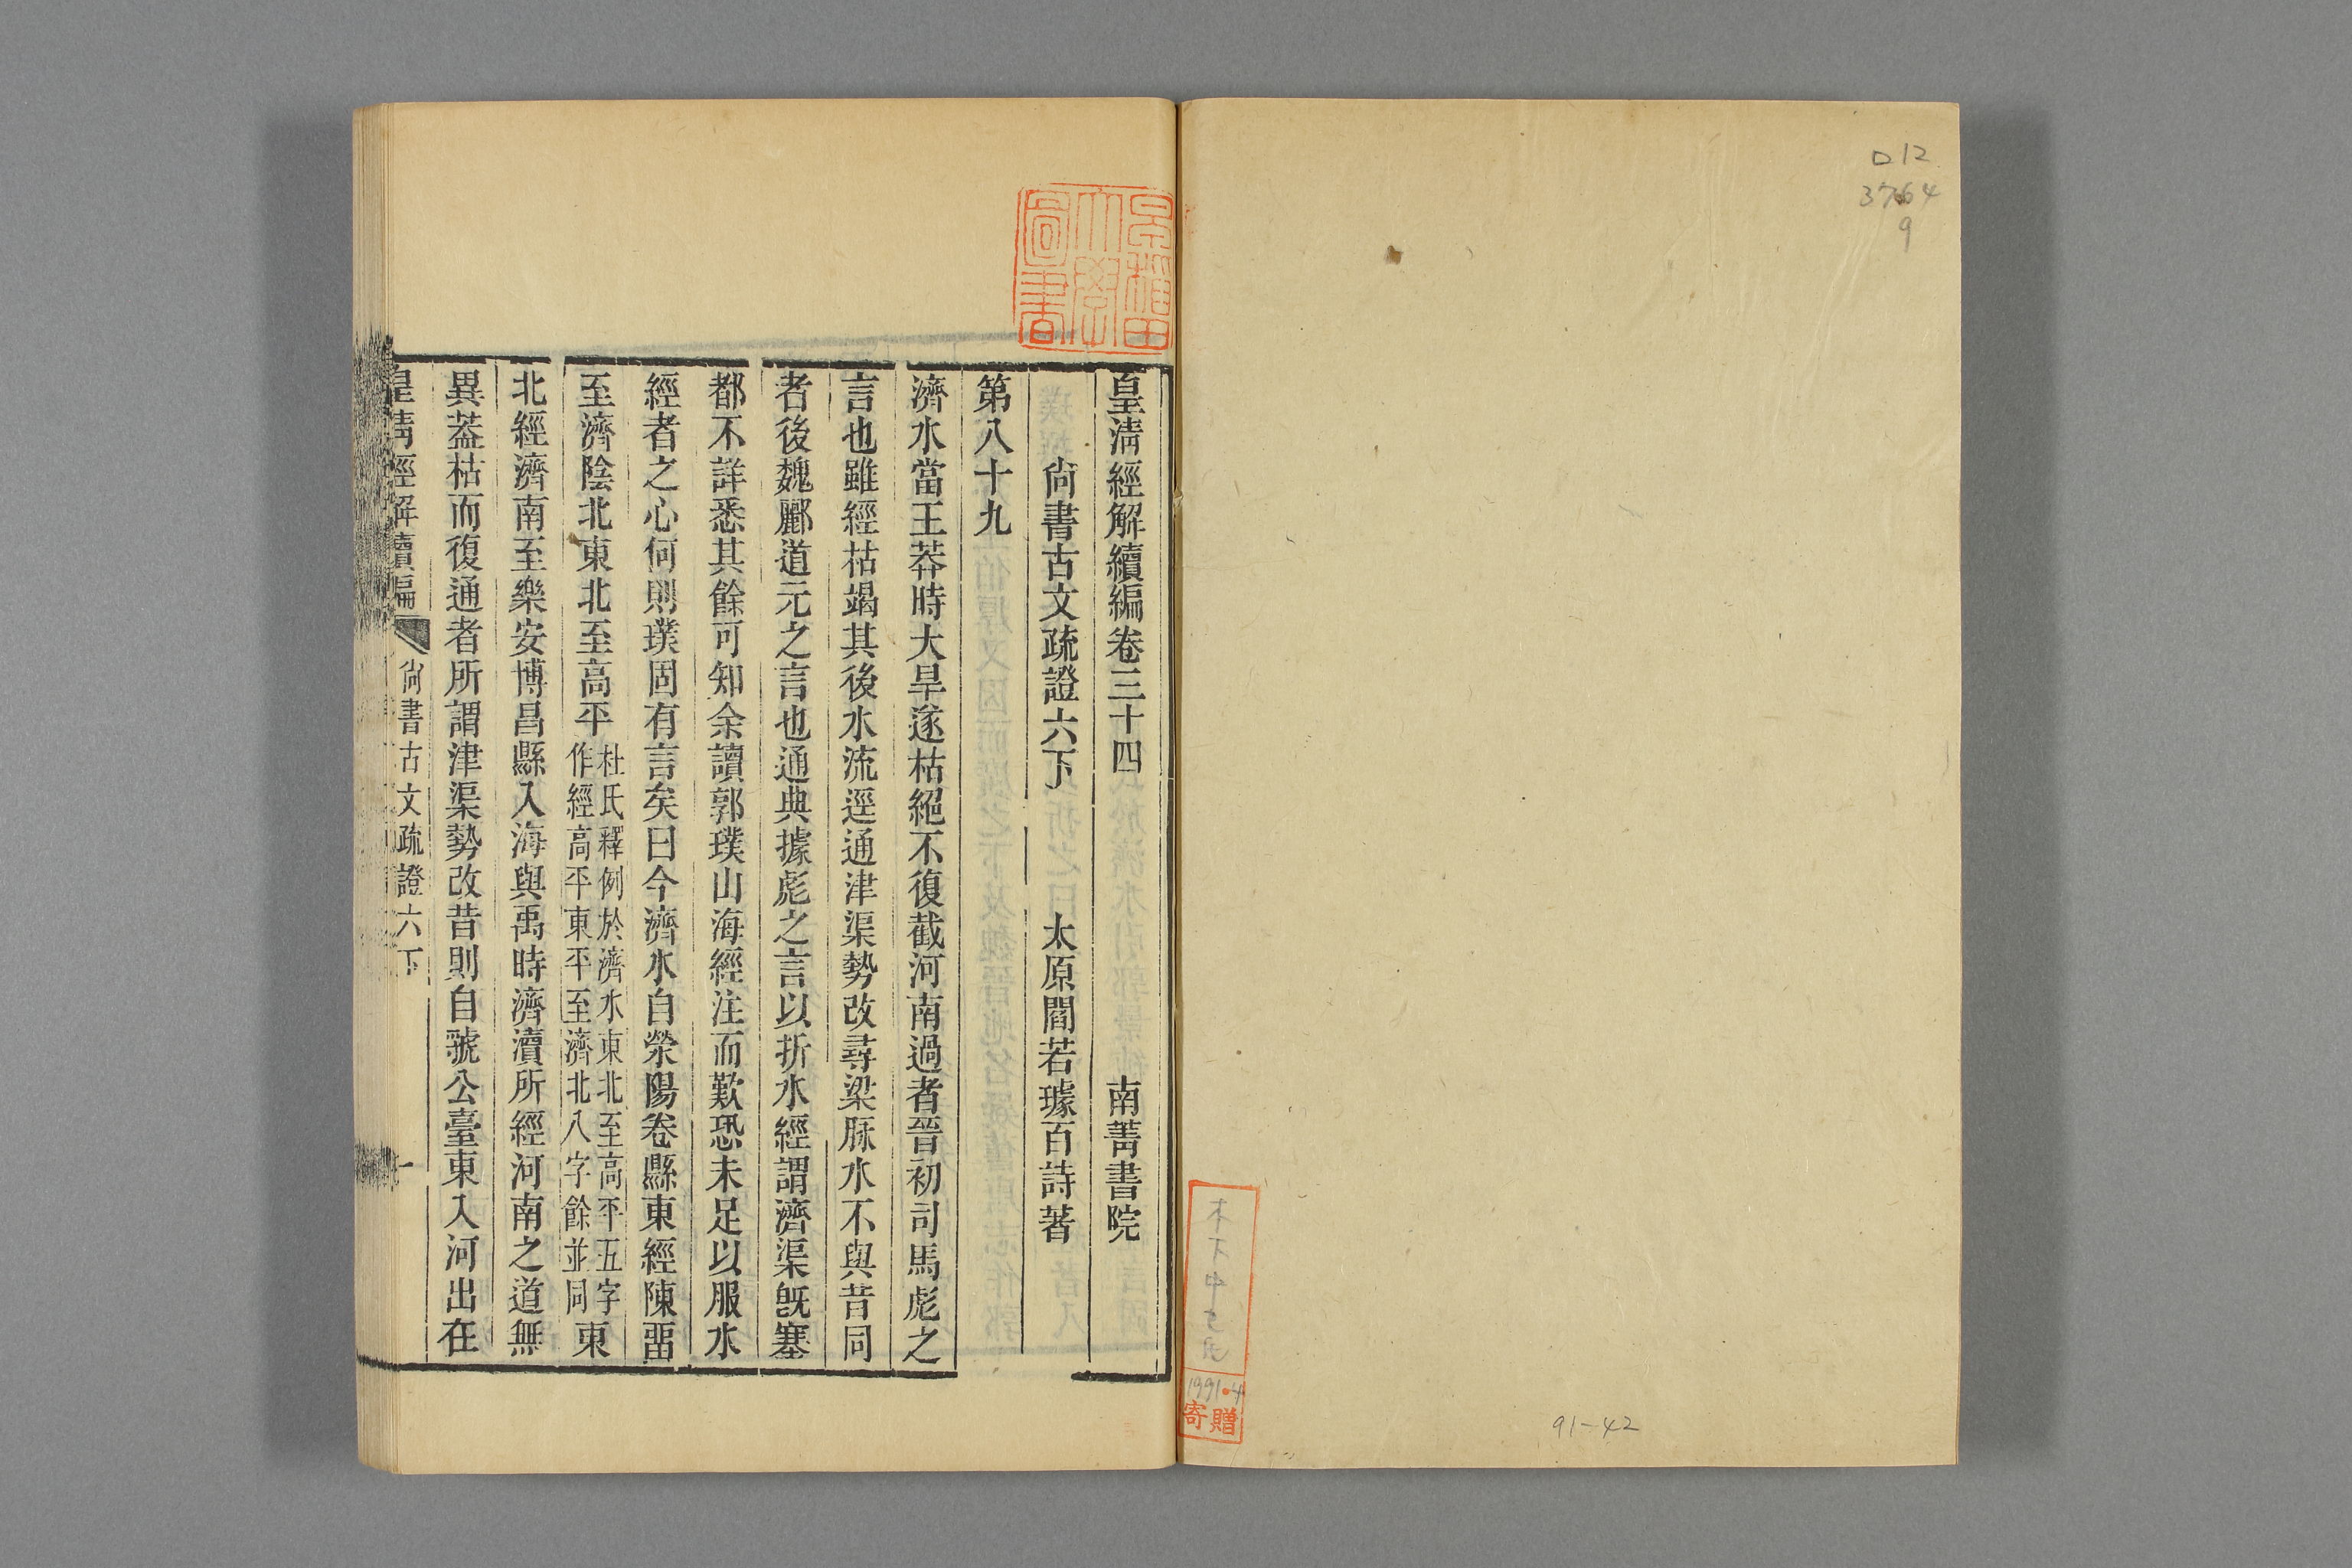 D12
3764
9
91-42
1991.4
寄贈
早稲田大學圖書
皇清經解續編卷三十四　南菁書院
尚書古文疏證六下　太原閻若璩百詩著
第八十九
濟水當王莽時大旱遂枯絕不復截河南過者晉初司馬彪之
言也雖經枯竭其後水流逕通津渠勢改尋梁脉水不與昔同
者後魏酈道元之言也通典據彪之言以折水經謂濟渠旣塞
都不詳悉其餘可知余讀郭璞山海經注而歎恐未足以服水
經者之心何則璞固有言矣曰今濟水自滎陽卷縣東經陳畱
至濟陰北東北至高平杜氏釋例於濟水東北至高平五字作經高平東平至濟北八字餘並同東
北經濟南至樂安博昌縣入海與禹時濟瀆所經河南之道無
異葢枯而復通者所謂津渠勢改昔則自虢公臺東入河出在
皇清經解續編　尚書古文疏證六下　一